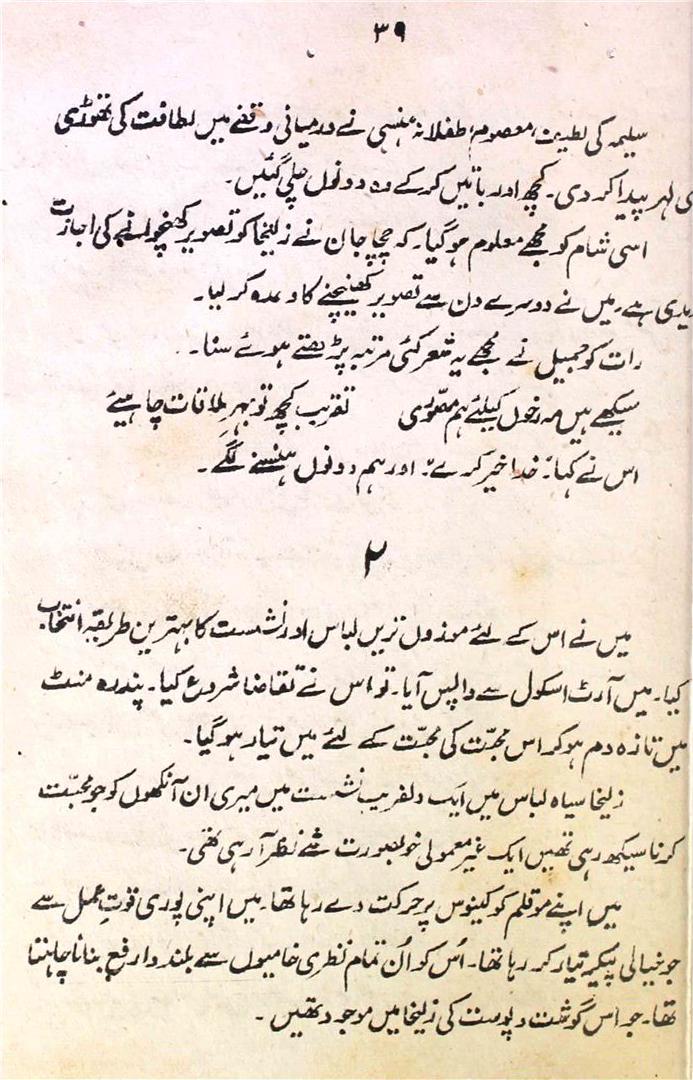 ۳۹
سلیمہ کی لطیف، معصوم، طفلانہ ہنسی نے درمیانی وقفے میں لطافت کی تھوڑی
سی لہر پیدا کر دی۔ کچھ اور باتیں کر کے وہ دونوں چلی گئیں۔
اسی شام کو مجھے معلوم ہو گیا۔ کہ چچا جان نے زلیخا کو تصویر کھنچوانے کی اجازت
دیدی ہے۔ میں نے دوسرے دن سے تصویر کھینچنے کا وعدہ کر لیا۔
رات کو جمیل نے مجھے یہ شعر کئی مرتبہ پڑھتے ہوئے سنا۔
سیکھے ہیں مہ رخوں کیلئے ہم مصوّری تقریب کچھ تو بہرِ ملاقات چاہیئے
اس نے کہا۔ "خدا خیر کرے"۔ اور ہم دونوں ہنسنے لگے۔
۲
میں نے اس کے لئے موزوں ترین لباس اور نشست کا بہترین طریقہ انتخاب
کیا۔ میں آرٹ اسکول سے واپس آیا۔ تو اس نے تقاضا شروع کیا۔ پندرہ منٹ
میں تازہ دم ہو کر اس محبّت کی محبّت کے لئے میں تیار ہو گیا۔
زلیخا سیاہ لباس میں ایک دلفریب نشست میں میری ان آنکھوں کو جو محبّت
کرنا سیکھ رہی تھیں ایک غیر معمولی خوبصورت شے نظر آ رہی تھی۔
میں اپنے موقلم کو کینوس پر حرکت دے رہا تھا۔ میں اپنی پوری قوتِ عمل سے
جو خیالی پیکر تیار کر رہا تھا۔ اُس کو اُن تمام نظری خامیوں سے بلند و ارفع بنانا چاہتا
تھا۔ جو اس گوشت و پوست کی زلیخا میں موجود تھیں۔